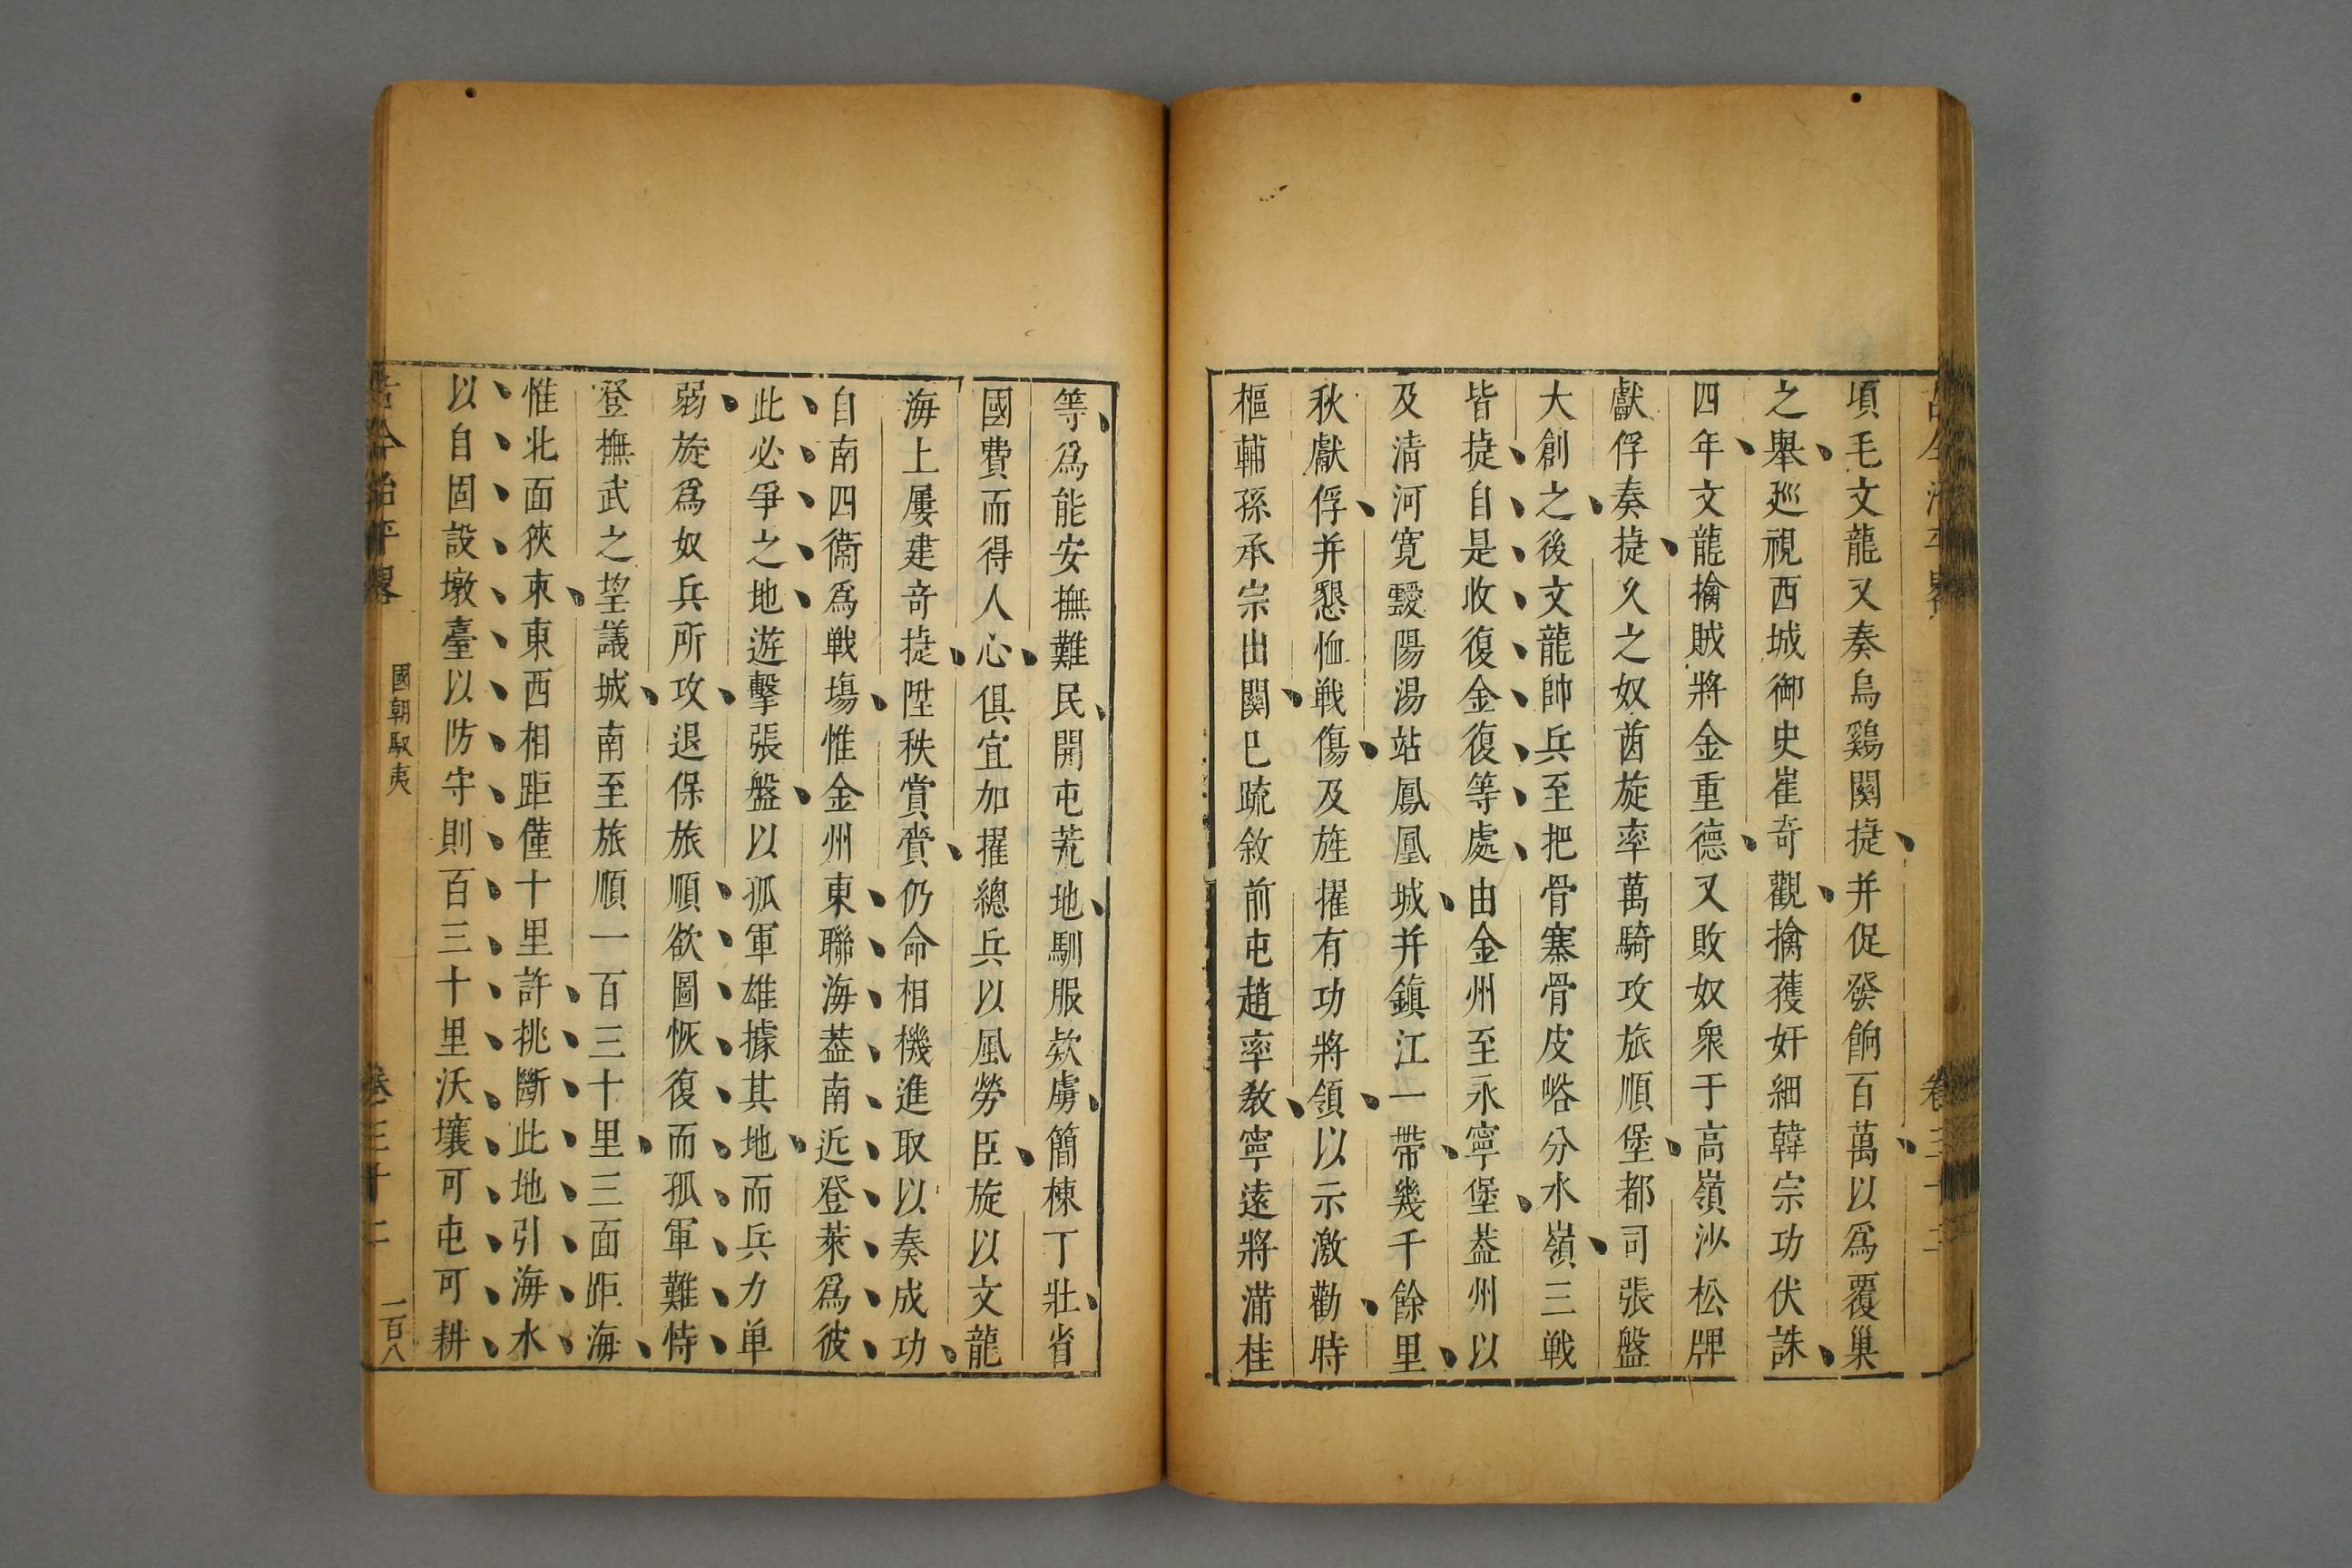 古今治平畧
卷三十二
項毛文龍又奏烏鷄關捷并促發餉百萬以爲覆巢
之舉廵視西城御史崔竒觀擒獲奸細韓宗功伏誅
四年文龍擒賊將金重德又敗奴衆于高嶺沙松牌
獻俘奏捷乆之奴酋旋率萬騎攻旅順堡都司張盤
大創之後文龍帥兵至把骨寨骨皮峪分水嶺三戦
皆捷自是收復金復等處由金州至永寧堡葢州以
及清河寛靉陽湯站鳳凰城并鎮江一帶幾千餘里
秋獻俘并懇恤戦傷及旌擢有功將領以示激勸時
樞輔孫承宗出關巳疏敘前屯趙率教寧遠將滿桂
等爲能安撫難民開屯荒地馴服欵虜簡楝丁壯省
國費而得人心俱宜加擢總兵以風勞臣旋以文龍
海上屢建奇捷陞秩賞賚仍命相機進取以奏成功
自南四衞爲戦塲惟金州東聯海葢南近登萊爲彼
此必爭之地遊擊張盤以孤軍雄據其地而兵力单
弱旋爲奴兵所攻退保旅順欲圖恢復而孤軍難恃
登撫武之望議城南至旅順一百三十里三面距海
惟北面狹束東西相距僅十里許挑斷此地引海水
以自固設墩臺以防守則百三十里沃壤可屯可耕
古今治平畧
國朝馭夷
卷三十二
一百八